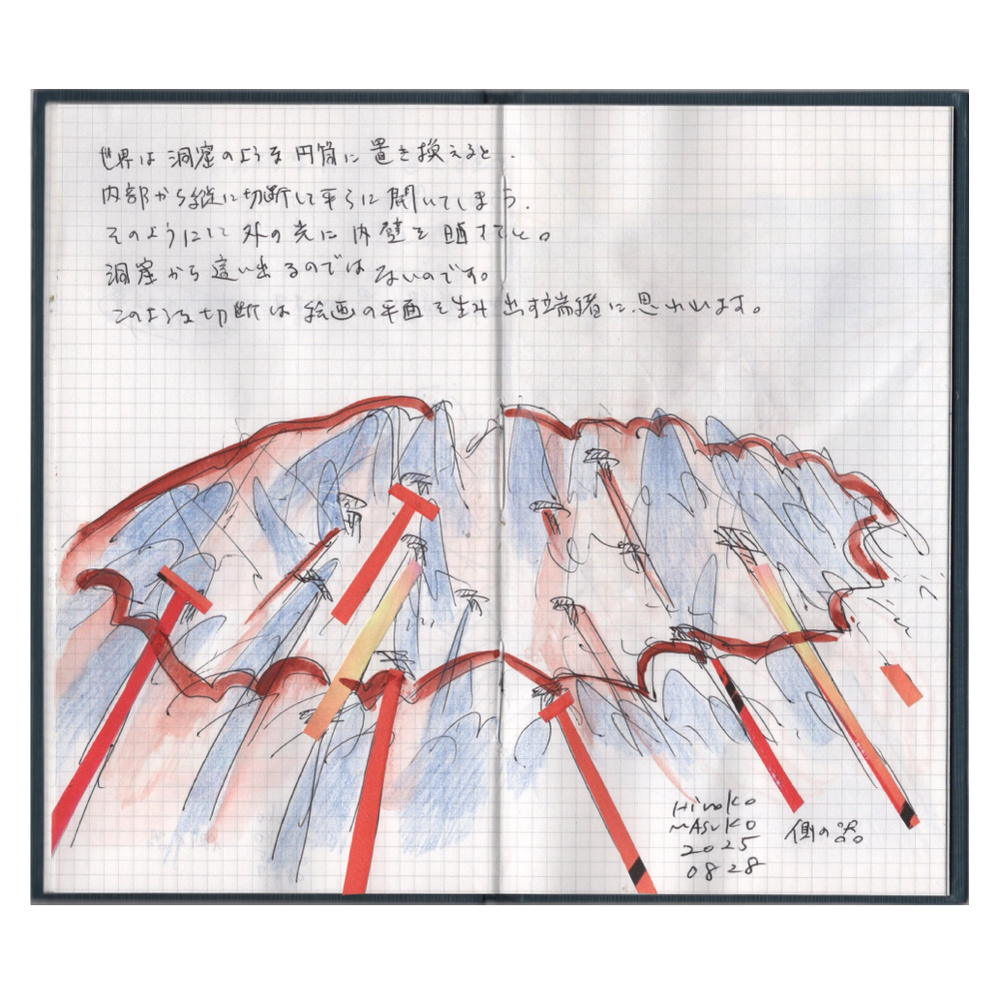 世界は洞窟のような円筒に置き換えると、
内部から縦に切断して平らに開いてしまう.
そのようにして外の光に内壁を晒すこと。
洞窟から這い出るのではないのです。
このような切断は絵画の平面を生み出す端緒に思われます。
Hiroko
MASUKO
2025
0828
側の器